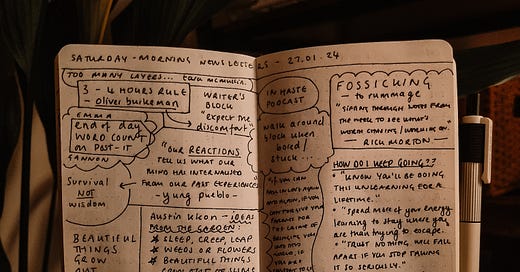 SATURDAY - MORNING NEWSLETTERS - 27.01.24
TOO MANY LAYERS... tara mcmullin.
3 - 4 HOURS RULE
- oliver burkeman
WRITER'S
BLOCK
"expect the
discomfort"
EMMA
end of day
WORD COUNT
on POST-IT
GANNON
"OUR REACTIONS
TELL US WHAT OUR
MIND HAS INTERNALISED
FROM OUR PAST EXPERIENCES"
- yung pueblo -
Survival
NOT
wisdom
Austin Kleon - IDEAS
FROM THE GARDEN:
* SLEEP, CREEP, LEAP
* WEEDS OR FLOWERS
* BEAUTIFUL THINGS
BEAUTIFUL
THINGS
GROW
OUT
IN HASTE
PODCAST
walk around
block when
bored /
stuck...
"IF YOU CAN
FALL IN LOVE AGAIN
AND AGAIN, IF YOU
CAN FORGIVE YOUR
PARENTS FOR
THE CRIME OF
BRINGING YOU
INTO
FOSSICKING
- to rummage
"SIFTING THROUGH NOTES FROM
THE WEEK TO SEE WHAT'S
WORTH SHARING / WORKING ON.
- RICK MORTON -
HOW DO I KEEP GOING??
* "KNOW YOU'LL BE DOING
THIS UNLEARNING FOR A
LIFETIME."
* "Spend more of your energy
learning to stay where you
are than trying to escape.
* "TRUST NOTHING WILL FALL
APART IF YOU STOP TAKING
IT SO SERIOUSLY."